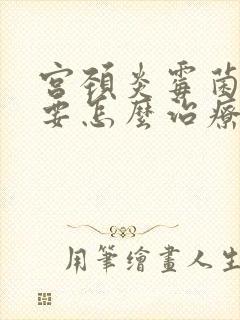 宮頚炎霉菌
要怎麼治療
用筆繪畫人生